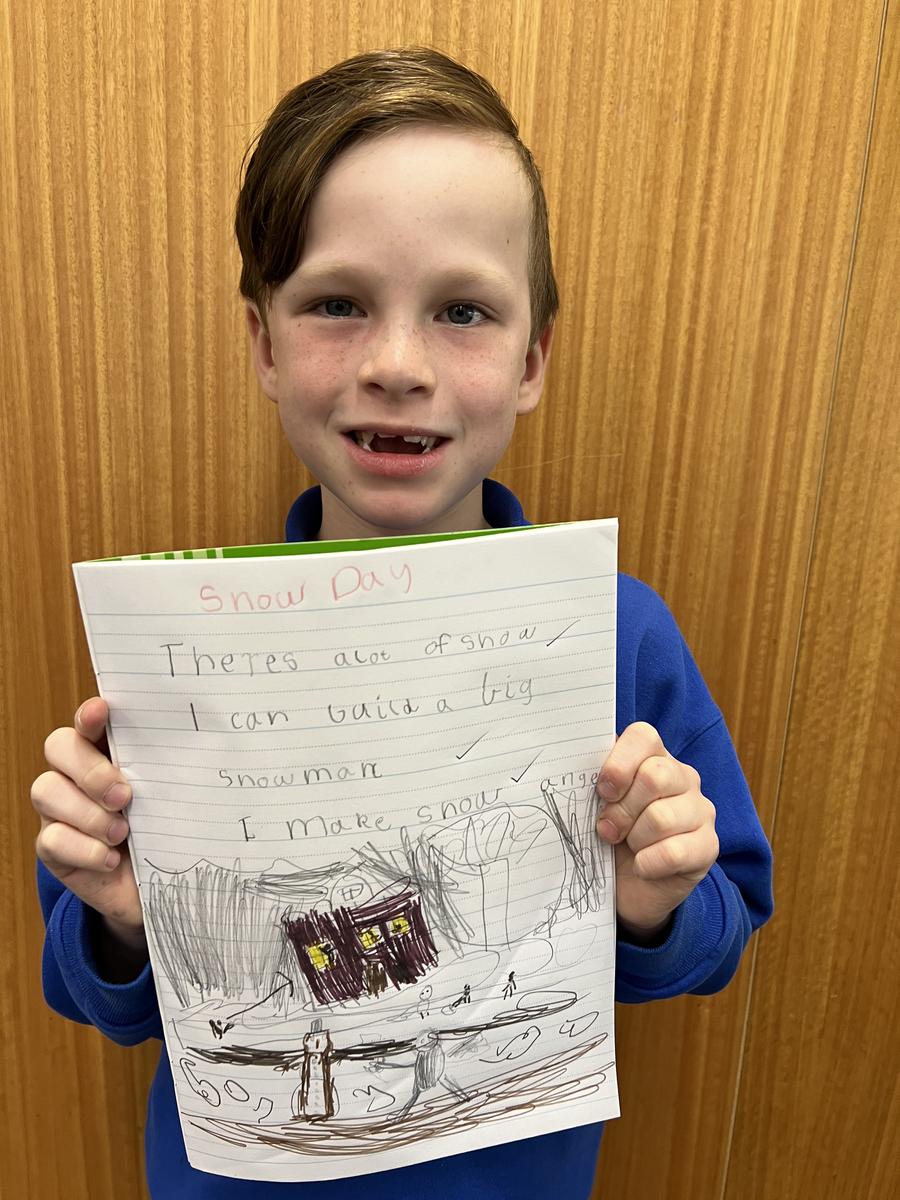 Snow Day
Theres alot of snow
I can build a big
snowman
I make snow ange